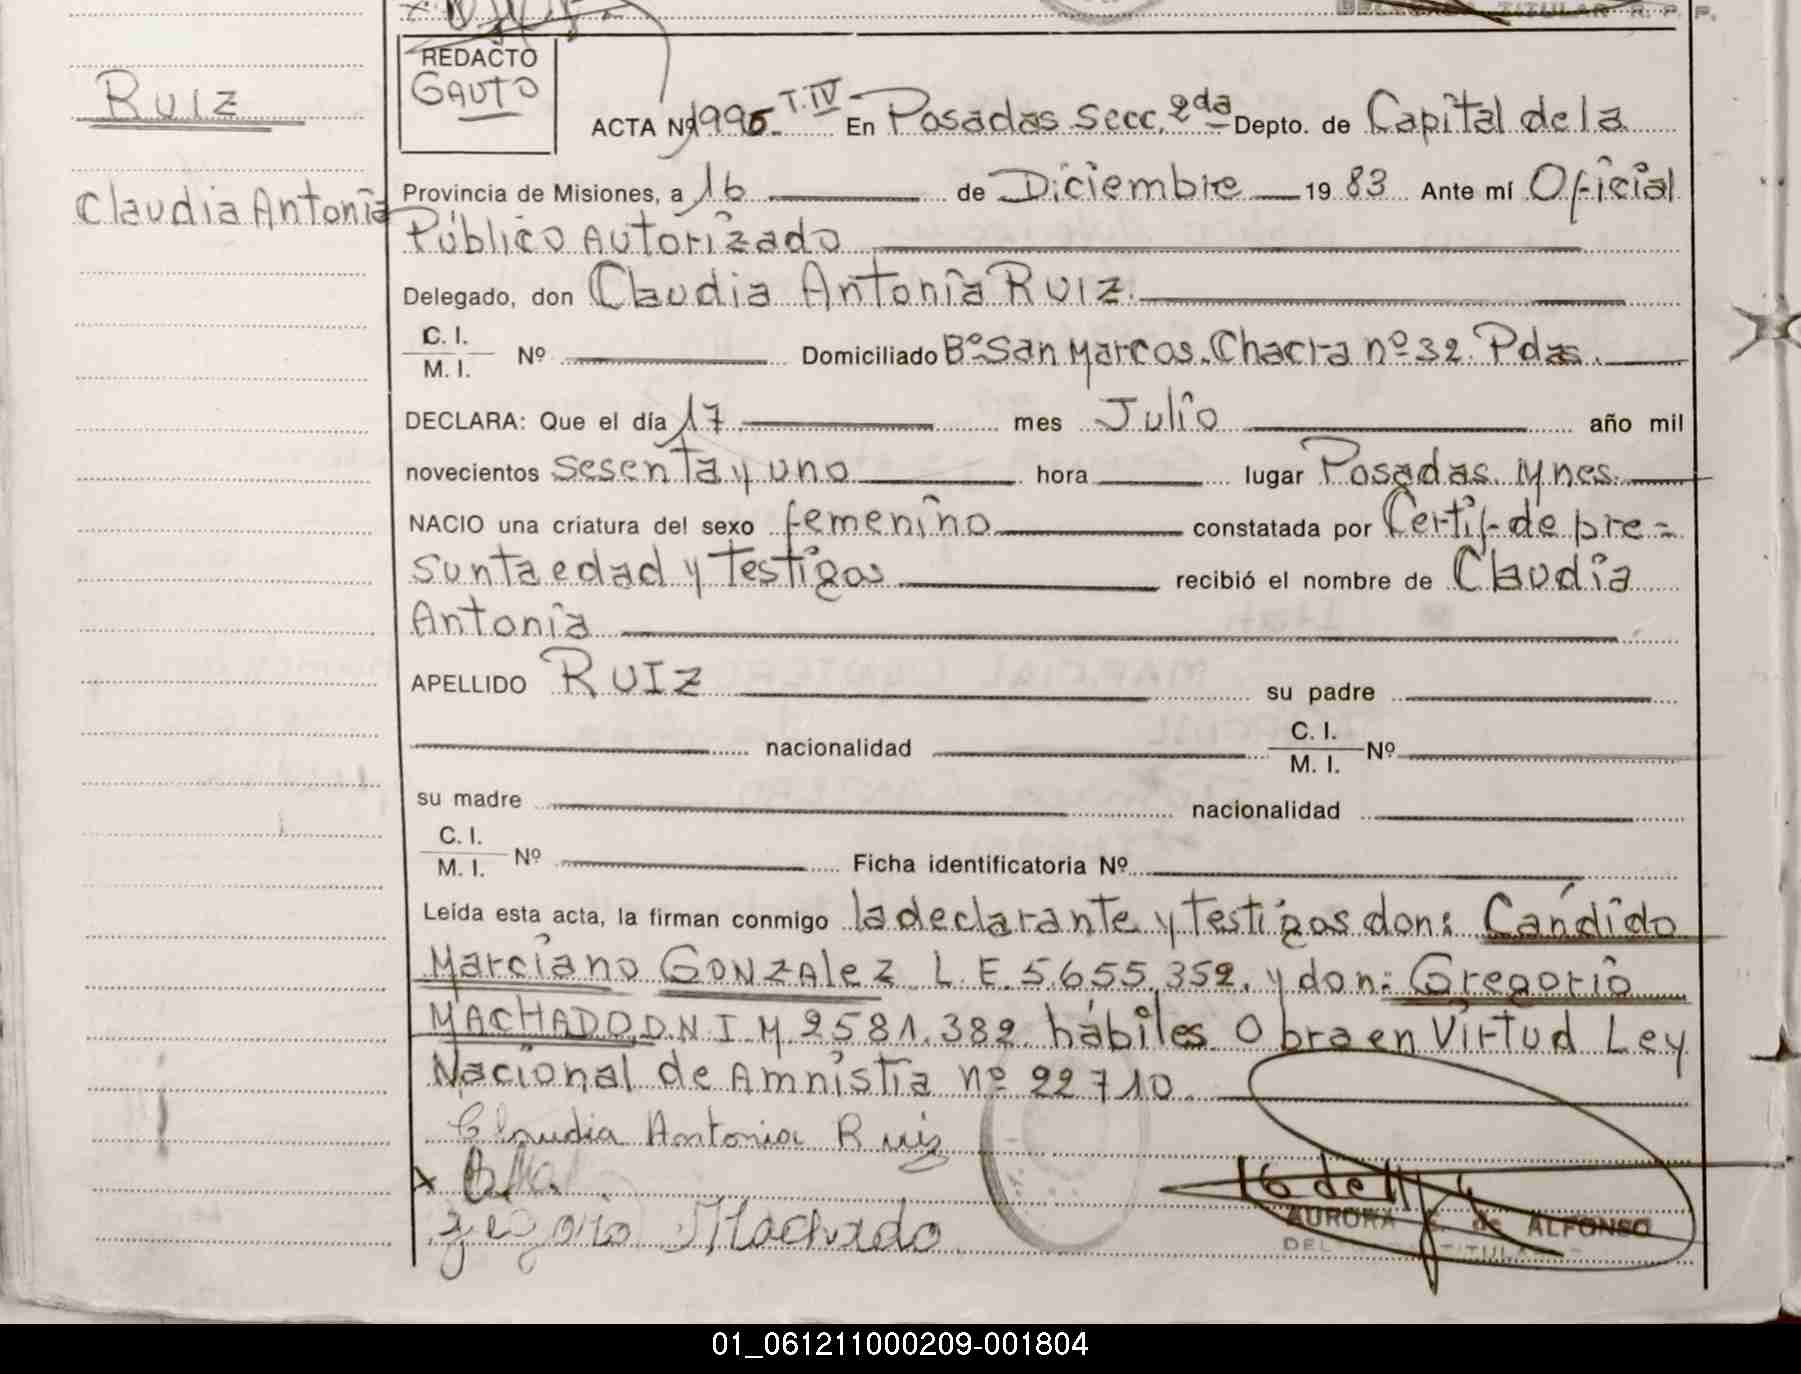 DELEGADA TITULAR R. P. P.
REDACTO
GAUTO
Ruiz
Claudia Antonia
ACTA Nº 1995 T. IV En Posadas Secc. 2da Depto. de Capital de la
Provincia de Misiones, a 16 de Diciembre 1983 Ante mí Oficial
Público Autorizado
Delegado, don Claudia Antonia RUIZ.
C. I.
M. I. Nº Domiciliado Bº San Marcos. Chacra nº 32. Pdas.
DECLARA: Que el día 17 mes Julio año mil
novecientos sesenta y uno hora lugar Posadas. Mnes.
NACIO una criatura del sexo femenino constatada por Certif. de pre=
sunta edad y testigos recibió el nombre de Claudia
Antonia
APELLIDO RUIZ su padre
nacionalidad C. I.
M. I. Nº
su madre nacionalidad
C. I.
M. I. Nº Ficha identificatoria Nº
Leída esta acta, la firman conmigo la declarante y testigos don: Cándido
Marciano GONZALEZ L. E. 5.655.352. y don: Gregorio
MACHADO D.N.I. M. 2581.382. hábiles. Obra en Virtud Ley
Nacional de Amnistia nº 22710.
Claudia Antonia Ruiz
Gregorio Machado
AURORA de ALFONSO
DEL TITULAR
01_061211000209-001804